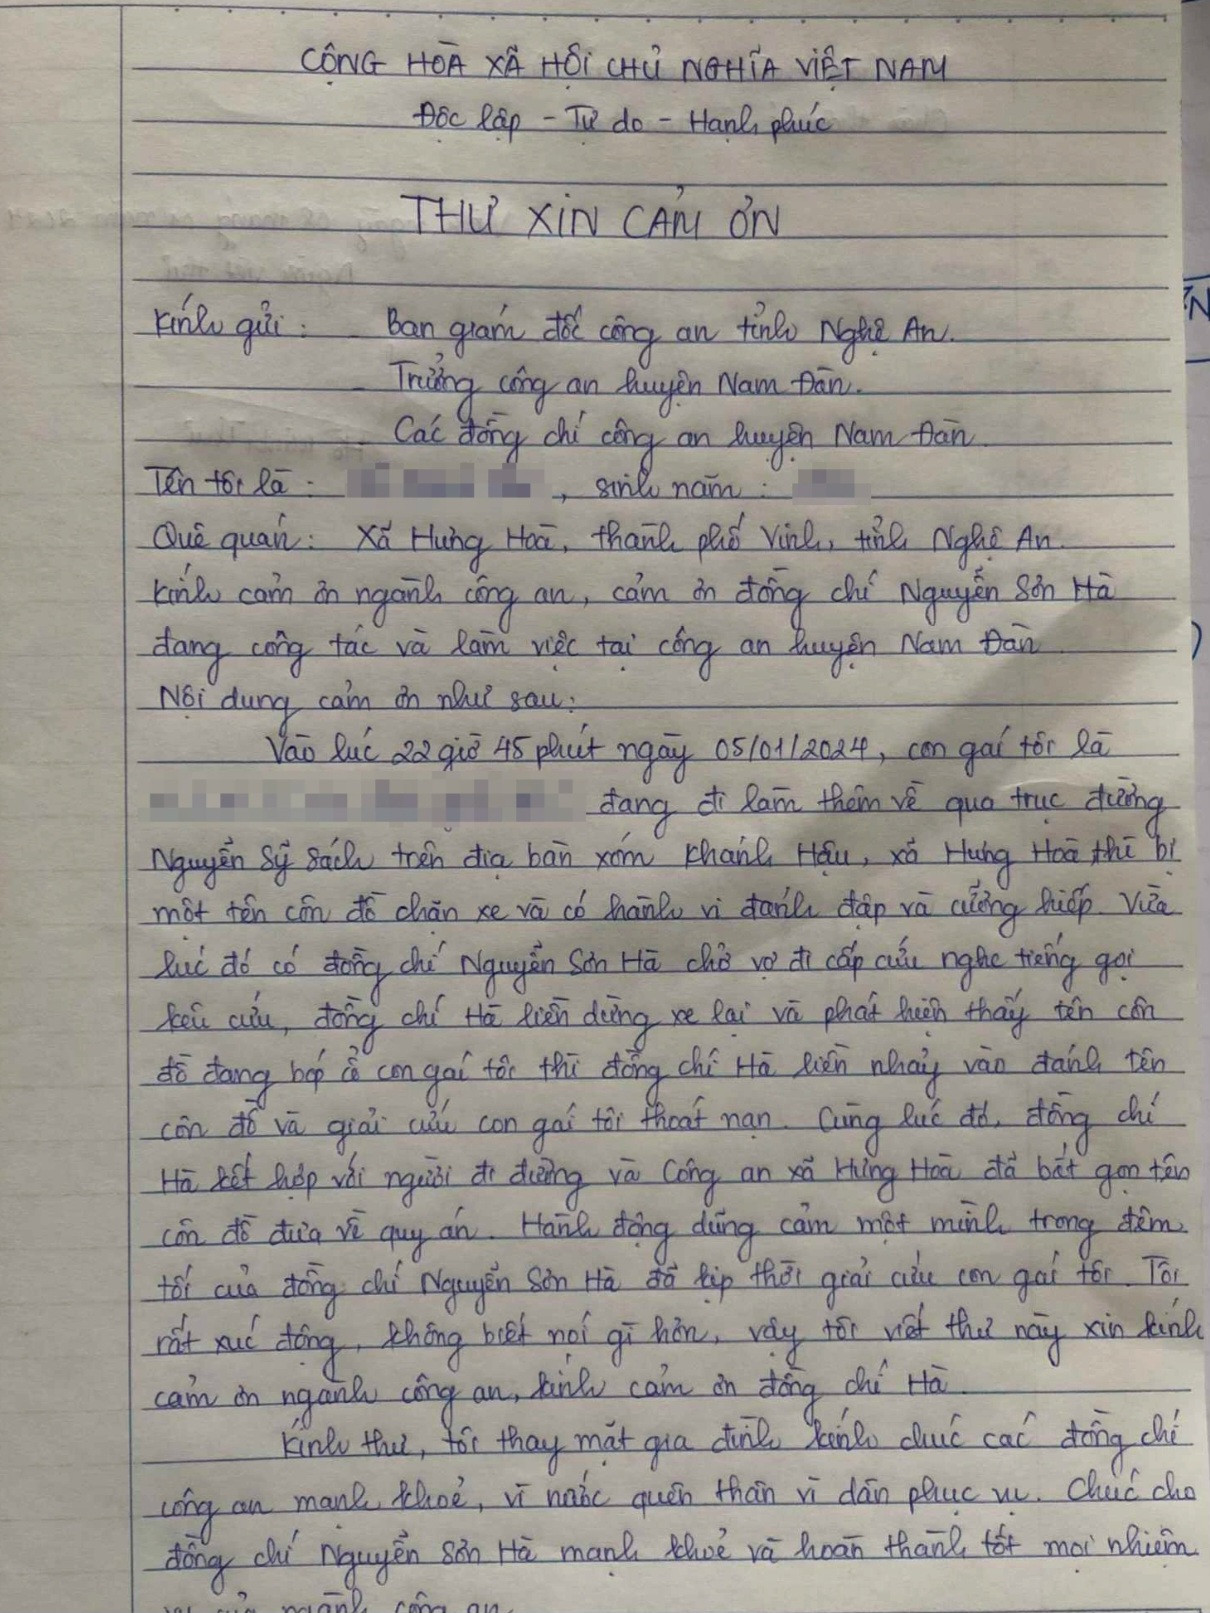 CỘNG HOÀ XÃ HỘI CHỦ NGHĨA VIỆT NAM
Độc lập - Tự do - Hạnh phúc
THƯ XIN CẢM ƠN
Kính gửi: Ban giám đốc công an tỉnh Nghệ An.
Trưởng công an huyện Nam Đàn.
Các đồng chí công an huyện Nam Đàn.
Tên tôi là: , sinh năm:
Quê quán: Xã Hưng Hoà, thành phố Vinh, tỉnh Nghệ An.
Kính cảm ơn ngành công an, cảm ơn đồng chí Nguyễn Sơn Hà
đang công tác và làm việc tại công an huyện Nam Đàn.
Nội dung cảm ơn như sau:
Vào lúc 22 giờ 45 phút ngày 05/01/2024, con gái tôi là
đang đi làm thêm về qua trục đường
Nguyễn Sỹ Sách trên địa bàn xóm Khánh Hậu, xã Hưng Hoà thì bị
một tên côn đồ chặn xe và có hành vi đánh đập và cưỡng hiếp. Vừa
lúc đó có đồng chí Nguyễn Sơn Hà chở vợ đi cấp cứu nghe tiếng gọi
kêu cứu, đồng chí Hà liền dừng xe lại và phát hiện thấy tên côn
đồ đang bóp cổ con gái tôi thì đồng chí Hà liền nhảy vào đánh tên
côn đồ và giải cứu con gái tôi thoát nạn. Cùng lúc đó, đồng chí
Hà kết hợp với người đi đường và Công an xã Hưng Hoà đã bắt gọn tên
côn đồ đưa về quy án. Hành động dũng cảm một mình trong đêm
tối của đồng chí Nguyễn Sơn Hà đã kịp thời giải cứu con gái tôi. Tôi
rất xúc động, không biết nói gì hơn, vậy tôi viết thư này xin kính
cảm ơn ngành công an, kính cảm ơn đồng chí Hà.
Kính thư, tôi thay mặt gia đình kính chúc các đồng chí
công an mạnh khoẻ, vì nước quên thân vì dân phục vụ. Chúc cho
đồng chí Nguyễn Sơn Hà mạnh khoẻ và hoàn thành tốt mọi nhiệm
vụ của ngành công an.